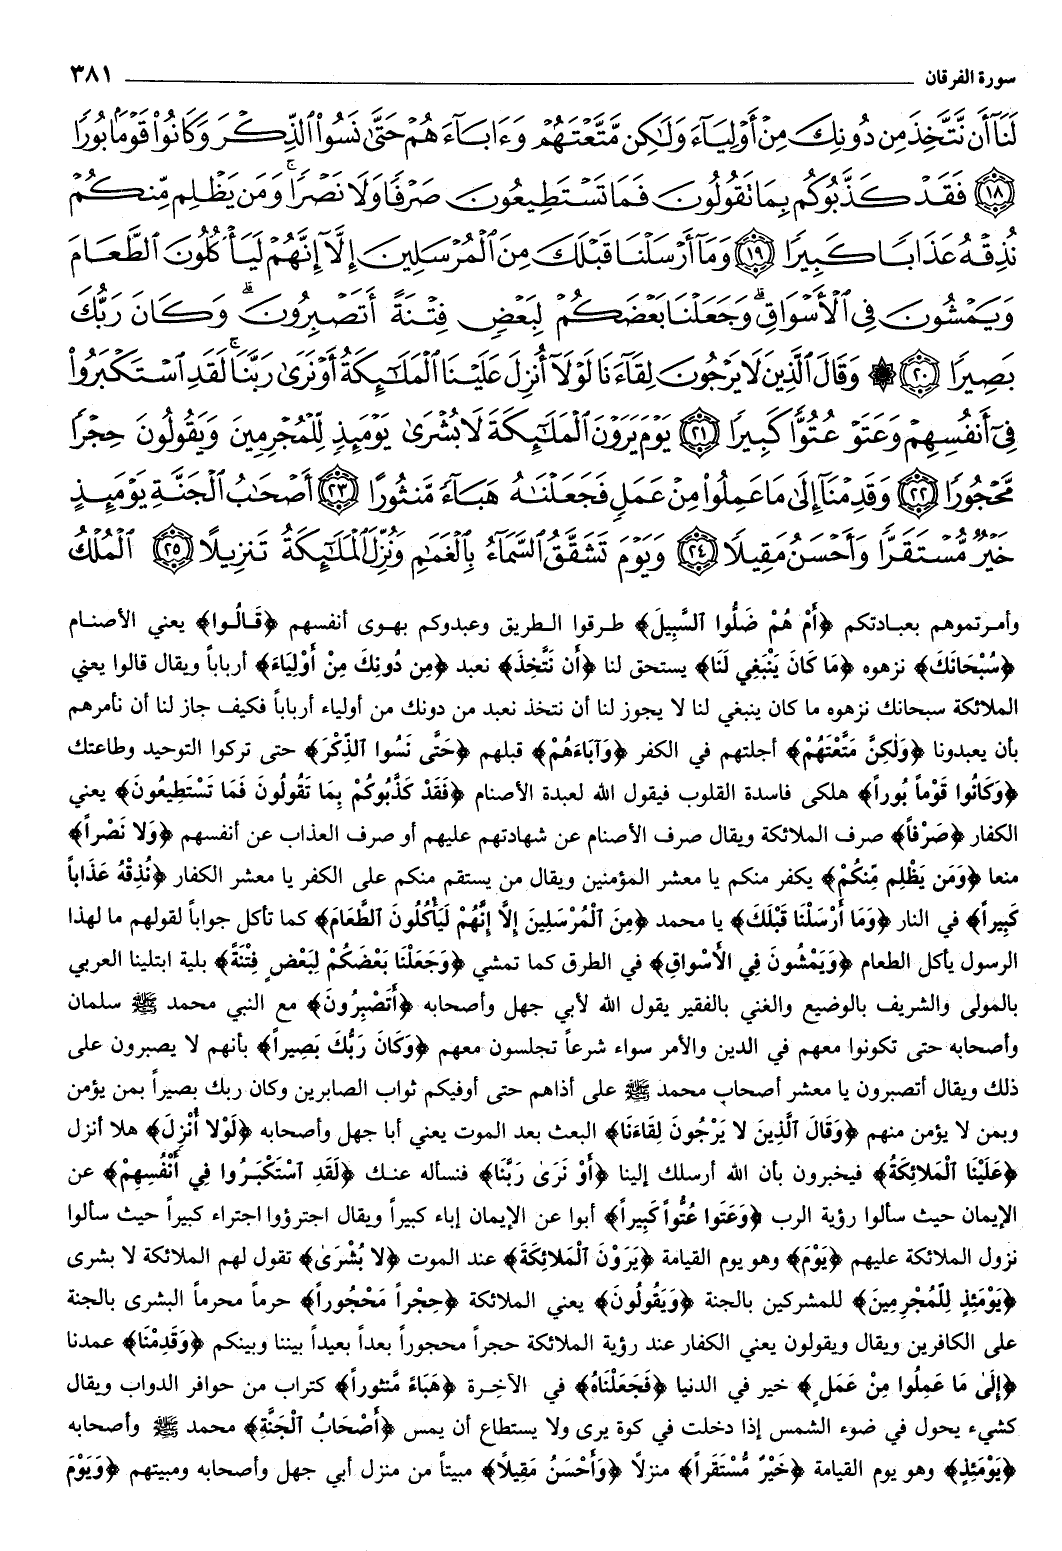 سورة الفرقان ٣٨١
لَنَآ أَن نَّتَّخِذَ مِن دُونِكَ مِنْ أَوْلِيَآءَ وَلَٰكِن مَّتَّعْتَهُمْ وَءَابَآءَهُمْ حَتَّىٰ نَسُوا۟ ٱلذِّكْرَ وَكَانُوا۟ قَوْمًۢا بُورًا
١٨ فَقَدْ كَذَّبُوكُم بِمَا تَقُولُونَ فَمَا تَسْتَطِيعُونَ صَرْفًا وَلَا نَصْرًا ۚ وَمَن يَظْلِم مِّنكُمْ
نُذِقْهُ عَذَابًا كَبِيرًا ١٩ وَمَآ أَرْسَلْنَا قَبْلَكَ مِنَ ٱلْمُرْسَلِينَ إِلَّآ إِنَّهُمْ لَيَأْكُلُونَ ٱلطَّعَامَ
وَيَمْشُونَ فِى ٱلْأَسْوَاقِ ۗ وَجَعَلْنَا بَعْضَكُمْ لِبَعْضٍ فِتْنَةً أَتَصْبِرُونَ ۗ وَكَانَ رَبُّكَ
بَصِيرًا ٢٠ ۞ وَقَالَ ٱلَّذِينَ لَا يَرْجُونَ لِقَآءَنَا لَوْلَآ أُنزِلَ عَلَيْنَا ٱلْمَلَٰٓئِكَةُ أَوْ نَرَىٰ رَبَّنَا ۗ لَقَدِ ٱسْتَكْبَرُوا۟
فِىٓ أَنفُسِهِمْ وَعَتَوْ عُتُوًّا كَبِيرًا ٢١ يَوْمَ يَرَوْنَ ٱلْمَلَٰٓئِكَةَ لَا بُشْرَىٰ يَوْمَئِذٍ لِّلْمُجْرِمِينَ وَيَقُولُونَ حِجْرًا
مَّحْجُورًا ٢٢ وَقَدِمْنَآ إِلَىٰ مَا عَمِلُوا۟ مِنْ عَمَلٍ فَجَعَلْنَٰهُ هَبَآءً مَّنثُورًا ٢٣ أَصْحَٰبُ ٱلْجَنَّةِ يَوْمَئِذٍ
خَيْرٌ مُّسْتَقَرًّا وَأَحْسَنُ مَقِيلًا ٢٤ وَيَوْمَ تَشَقَّقُ ٱلسَّمَآءُ بِٱلْغَمَٰمِ وَنُزِّلَ ٱلْمَلَٰٓئِكَةُ تَنزِيلًا ٢٥ ٱلْمُلْكُ
وأمرتموهم بعبادتكم ﴿أَمْ هُمْ ضَلُّوا ٱلسَّبِيلَ﴾ طرقوا الطريق وعبدوكم بهوى أنفسهم ﴿قَالُوا﴾ يعني الأصنام
﴿سُبْحَانَكَ﴾ نزهوه ﴿مَا كَانَ يَنْبَغِي لَنَا﴾ يستحق لنا ﴿أَن نَتَّخِذَ﴾ نعبد ﴿مِن دُونِكَ مِنْ أَوْلِيَاءَ﴾ أرباباً ويقال قالوا يعني
الملائكة سبحانك نزهوه ما كان ينبغي لنا لا يجوز لنا أن نتخذ نعبد من دونك من أولياء أرباباً فكيف جاز لنا أن نأمرهم
بأن يعبدونا ﴿وَلٰكِنَّ مَتَّعْتَهُمْ﴾ أجلتهم في الكفر ﴿وَآبَاءَهُمْ﴾ قبلهم ﴿حَتَّى نَسُوا الذِّكْرَ﴾ حتى تركوا التوحيد وطاعتك
﴿وَكَانُوا قَوْماً بُوراً﴾ هلكى فاسدة القلوب فيقول الله لعبدة الأصنام ﴿فَقَدْ كَذَّبُوكُمْ بِمَا تَقُولُونَ فَمَا تَسْتَطِيعُونَ﴾ يعني
الكفار ﴿صَرْفاً﴾ صرف الملائكة ويقال صرف الأصنام عن شهادتهم عليهم أو صرف العذاب عن أنفسهم ﴿وَلا نَصْراً﴾
منعا ﴿وَمَن يَظْلِم مِّنكُمْ﴾ يكفر منكم يا معشر المؤمنين ويقال من يستقم منكم على الكفر يا معشر الكفار ﴿نُذِقْهُ عَذَاباً
كَبِيراً﴾ في النار ﴿وَمَا أَرْسَلْنَا قَبْلَكَ﴾ يا محمد ﴿مِنَ ٱلْمُرْسَلِينَ إِلَّا إِنَّهُمْ لَيَأْكُلُونَ الطَّعَامَ﴾ كما تأكل جواباً لقولهم ما لهذا
الرسول يأكل الطعام ﴿وَيَمْشُونَ فِي الأَسْوَاقِ﴾ في الطرق كما تمشي ﴿وَجَعَلْنَا بَعْضَكُمْ لِبَعْضٍ فِتْنَةً﴾ بلية ابتلينا العربي
بالمولى والشريف بالوضيع والغني بالفقير يقول الله لأبي جهل وأصحابه ﴿أَتَصْبِرُونَ﴾ مع النبي محمد ﷺ سلمان
وأصحابه حتى تكونوا معهم في الدين والأمر سواء شرعاً تجلسون معهم ﴿وَكَانَ رَبُّكَ بَصِيراً﴾ بأنهم لا يصبرون على
ذلك ويقال أتصبرون يا معشر أصحاب محمد ﷺ على أذاهم حتى أوفيكم ثواب الصابرين وكان ربك بصيراً بمن يؤمن
وبمن لا يؤمن منهم ﴿وَقَالَ ٱلَّذِينَ لا يَرْجُونَ لِقَاءَنَا﴾ البعث بعد الموت يعني أبا جهل وأصحابه ﴿لَوْلا أُنْزِلَ﴾ هلا أنزل
﴿عَلَيْنَا ٱلْمَلائِكَةُ﴾ فيخبرون بأن الله أرسلك إلينا ﴿أَوْ نَرَىٰ رَبَّنَا﴾ فنسأله عنك ﴿لَقَدِ ٱسْتَكْبَرُوا فِي أَنْفُسِهِمْ﴾ عن
الإيمان حيث سألوا رؤية الرب ﴿وَعَتَوا عُتُّواً كَبِيراً﴾ أبوا عن الإيمان إباء كبيراً ويقال اجترؤوا اجتراء كبيراً حيث سألوا
نزول الملائكة عليهم ﴿يَوْمَ﴾ وهو يوم القيامة ﴿يَرَوْنَ ٱلْمَلائِكَةَ﴾ عند الموت ﴿لا بُشْرَىٰ﴾ تقول لهم الملائكة لا بشرى
﴿يَوْمَئِذٍ لِلْمُجْرِمِينَ﴾ للمشركين بالجنة ﴿وَيَقُولُونَ﴾ يعني الملائكة ﴿حِجْراً مَحْجُوراً﴾ حرماً محرماً البشرى بالجنة
على الكافرين ويقال ويقولون يعني الكفار عند رؤية الملائكة حجراً محجوراً بعداً بعيداً بيننا وبينكم ﴿وَقَدِمْنَا﴾ عمدنا
﴿إِلَىٰ مَا عَمِلُوا مِنْ عَمَلٍ﴾ خير في الدنيا ﴿فَجَعَلْنَاهُ﴾ في الآخرة ﴿هَبَاءً مَّنثوراً﴾ كتراب من حوافر الدواب ويقال
كشيء يحول في ضوء الشمس إذا دخلت في كوة يرى ولا يستطاع أن يمس ﴿أَصْحَابُ ٱلْجَنَّةِ﴾ محمد ﷺ وأصحابه
﴿يَوْمَئِذٍ﴾ وهو يوم القيامة ﴿خَيْرٌ مُّسْتَقَراً﴾ منزلًا ﴿وَأَحْسَنُ مَقِيلًا﴾ مبيتاً من منزل أبي جهل وأصحابه ومبيتهم ﴿وَيَوْمَ